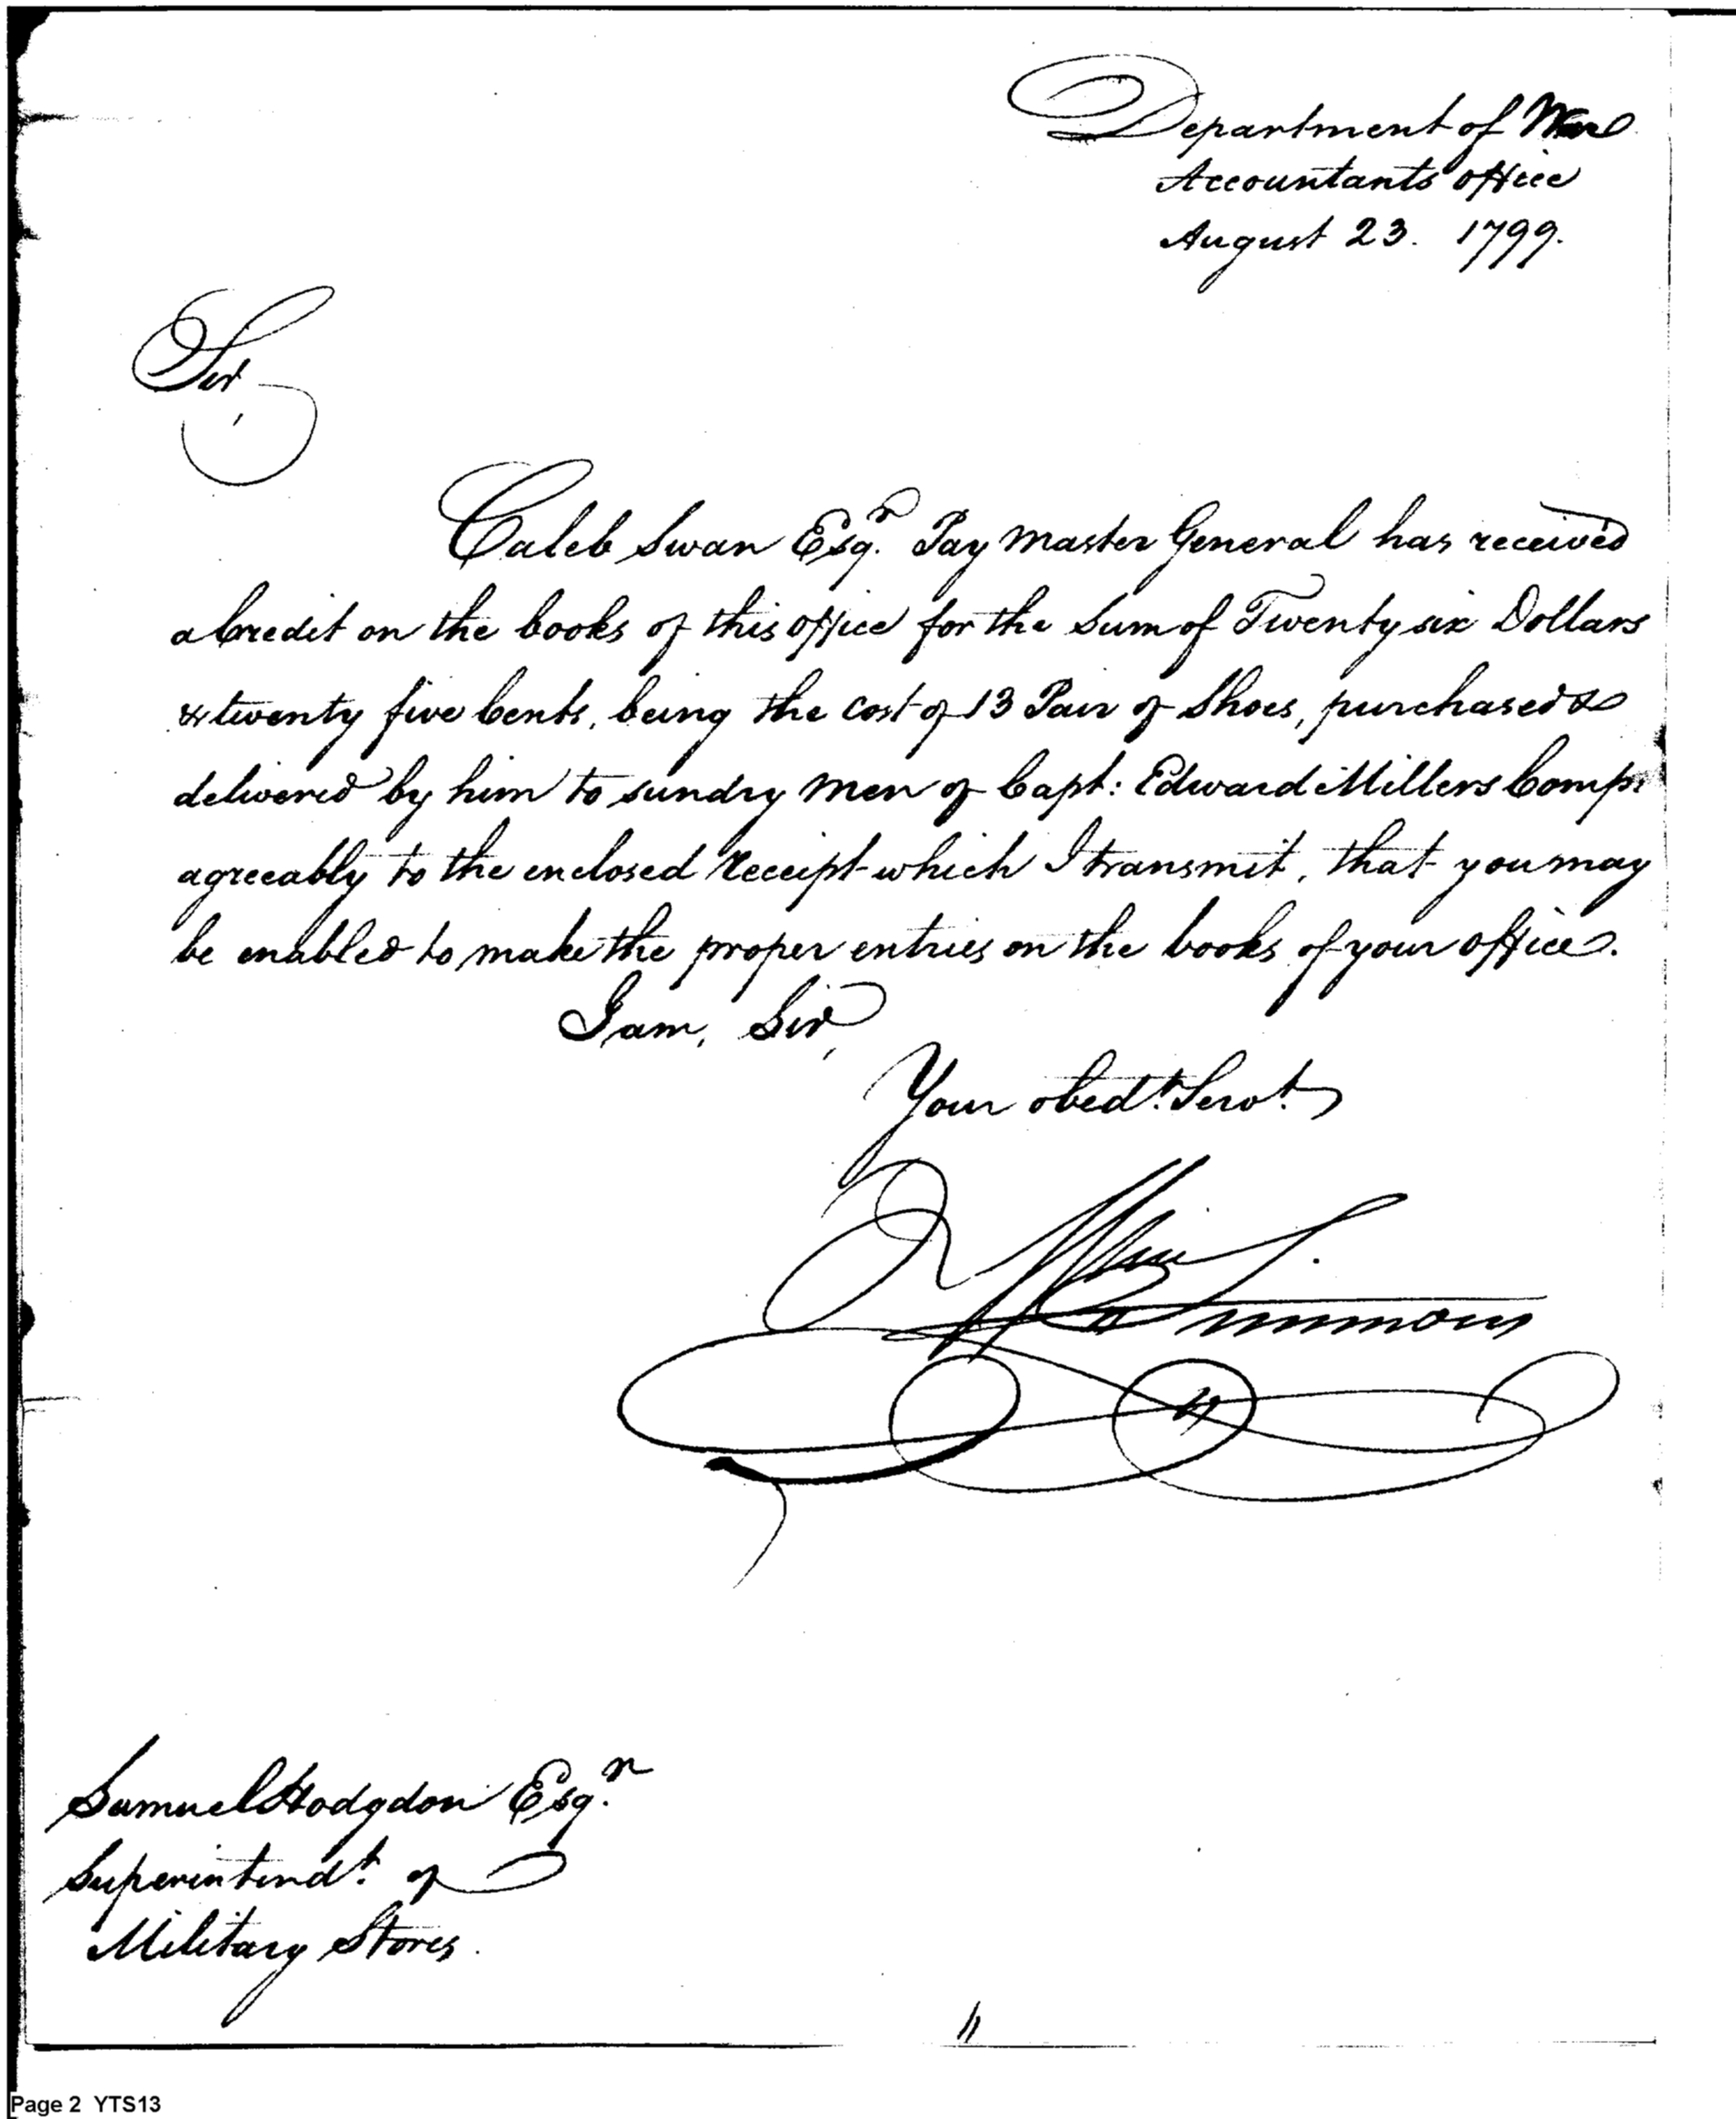 Department of War
Accountants office
August 23. 1799.
Sir,
Caleb Swan Esqr. Pay Master General has received
a Credit on the books of this office for the Sum of Twenty six Dollars
& twenty five Cents, being the cost of 13 Pair of Shoes, purchased &
delivered by him to sundry Men of Capt: Edward Millers Comp:
agreeably to the enclosed Receipt which I transmit, that you may
be enabled to make the proper entries on the books of your office.
I am, Sir,
Your obedt. Servt.
Wm Simmons
Samuel Hodgdon Esqr.
Superintendt. of
Military Stores.
Page 2 YTS13